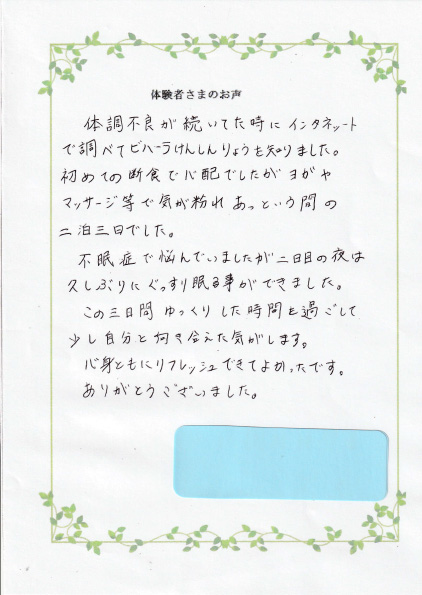 体験者さまのお声
体調不良が続いてた時にインタネット
で調べてビハーラけんしんりょうを知りました。
初めての断食で心配でしたがヨガや
マッサージ等で気が紛れあっという間の
二泊三日でした。
不眠症で悩んでいましたが二日目の夜は
久しぶりにぐっすり眠る事ができました。
この三日間ゆっくりした時間を過ごして
少し自分と向き合えた気がします。
心身ともにリフレッシュできてよかったです。
ありがとうございました。